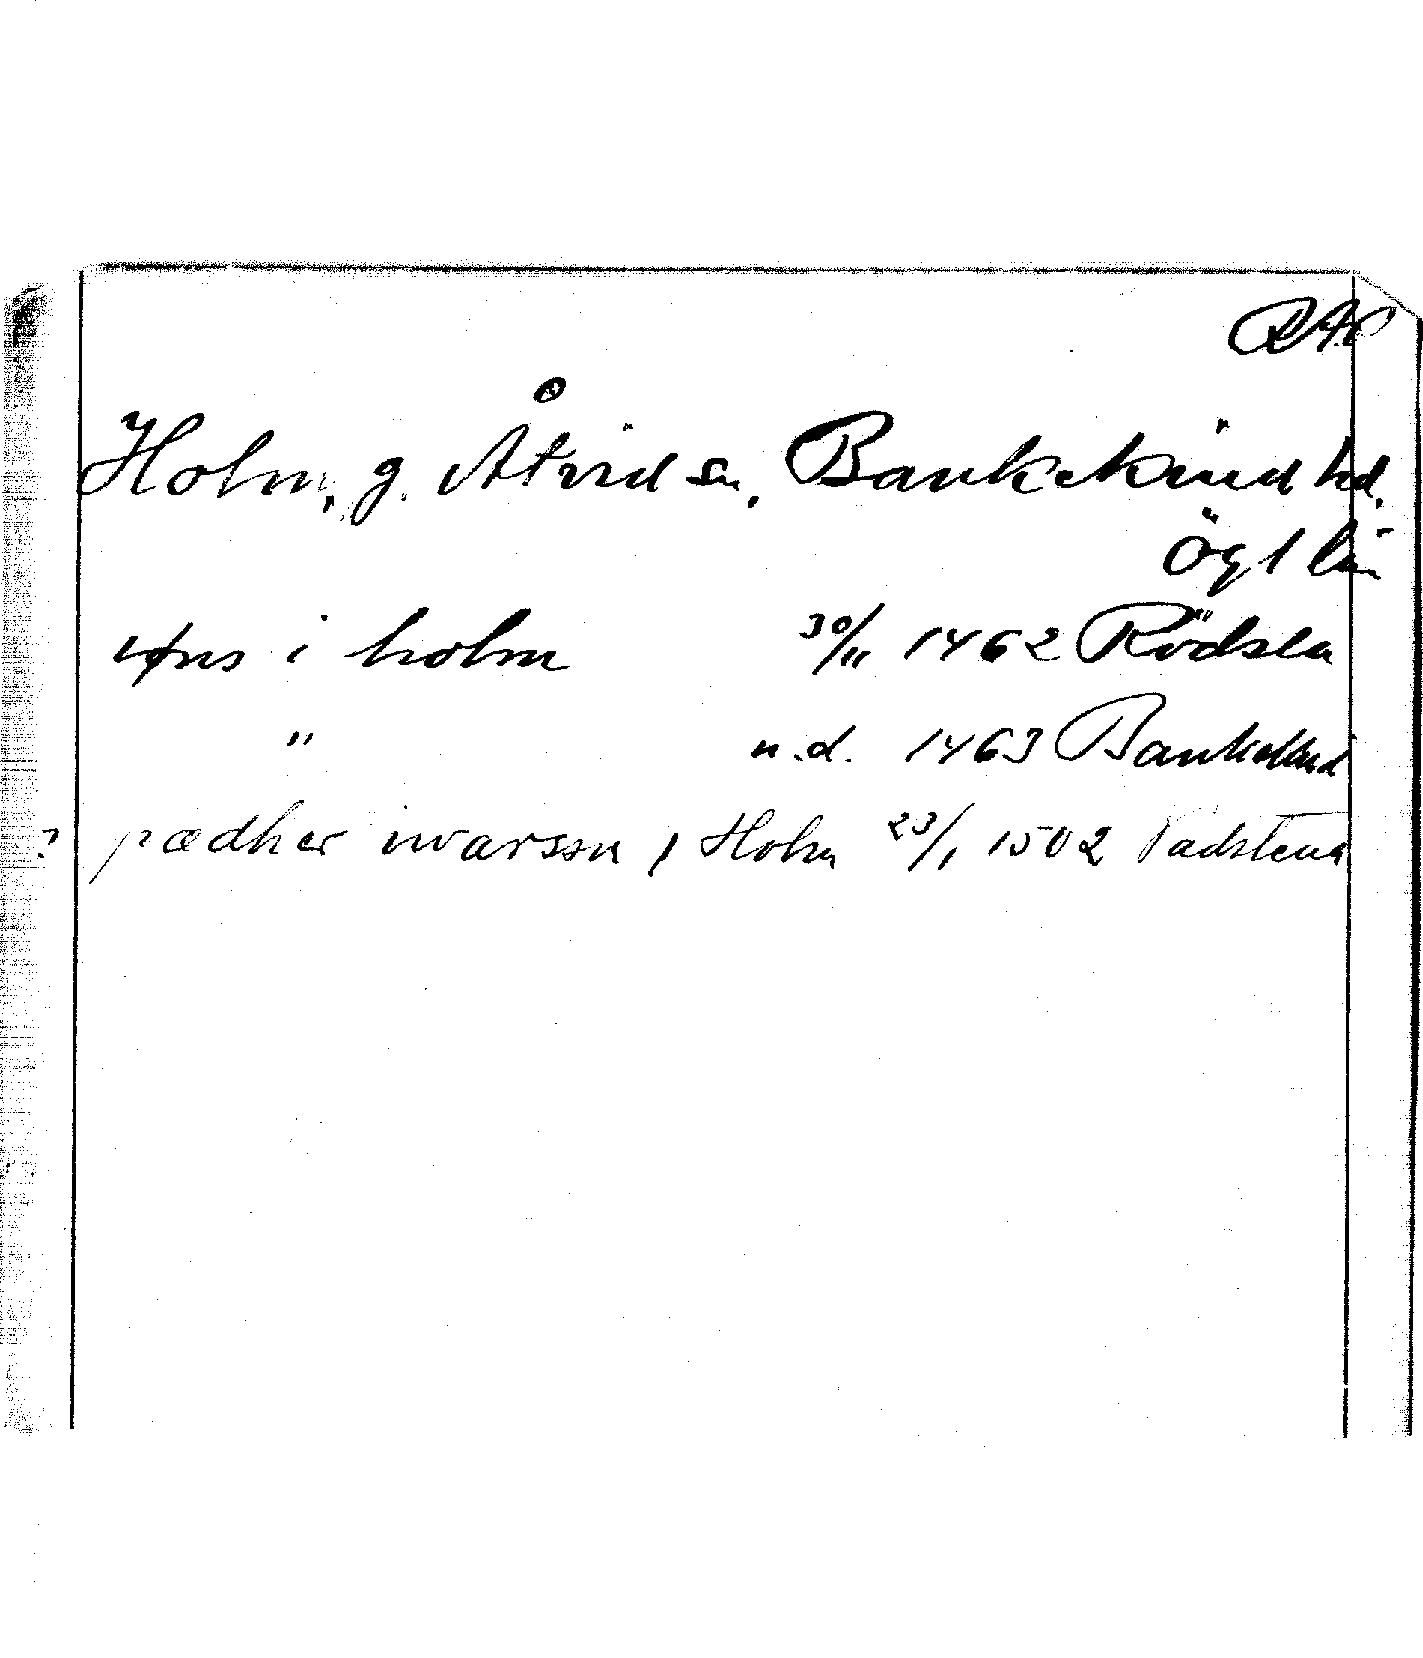 RAP
Holm, g. Åtvid sn, Bankekind hd.
Ögl län
i holm 30/11 1462 Rödsla
" u.d. 1463 Bankekind
? pædher iwarssn i Holm 23/1 1502 Vadstena